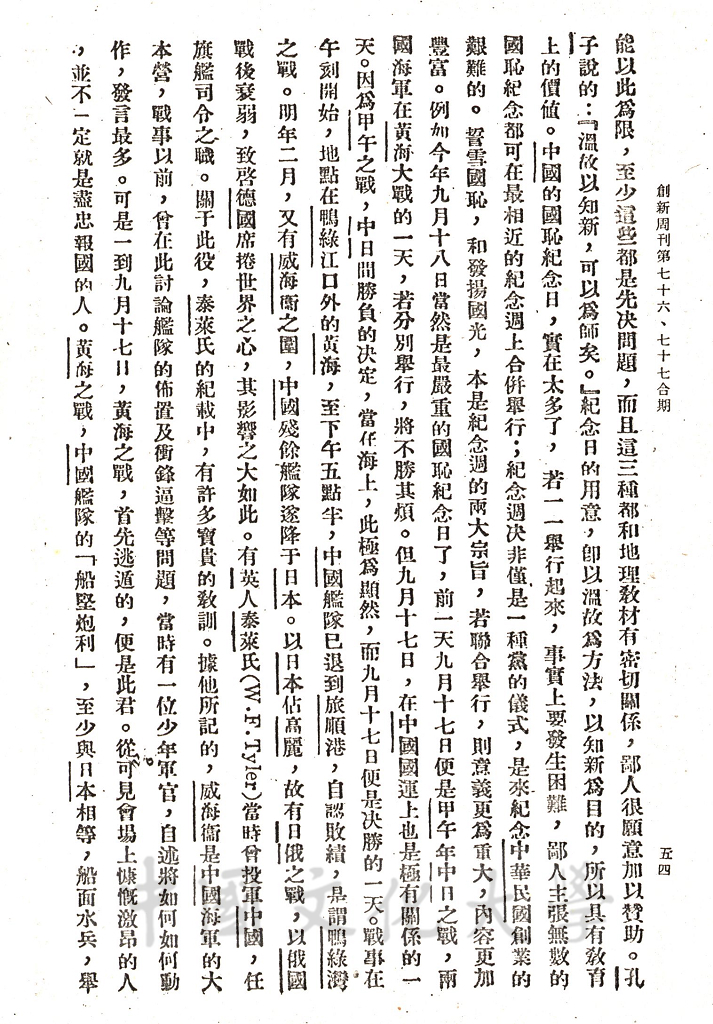 創新周刊第七十六、七十七合期
五四
能以此爲限，至少這些都是先决問題，而且這三種都和地理敎材有密切關係，鄙人很願意加以贊助。孔
子說的：『溫故以知新，可以爲師矣。』紀念日的用意，卽以溫故爲方法，以知新爲目的，所以具有敎育
上的價值。中國的國恥紀念日，實在太多了，若一一舉行起來，事實上要發生困難，鄙人主張無數的
國恥紀念都可在最相近的紀念週上合併舉行；紀念週决非僅是一種黨的儀式，是來紀念中華民國創業的
艱難的。誓雪國恥，和發揚國光，本是紀念週的兩大宗旨，若聯合舉行，則意義更爲重大，內容更加
豐富。例如今年九月十八日當然是最嚴重的國恥紀念日了，前一天九月十七日便是甲午年中日之戰，兩
國海軍在黃海大戰的一天，若分別舉行，將不勝其煩。但九月十七日，在中國國運上也是極有關係的一
天。因爲甲午之戰，中日間勝負的决定，當在海上，此極爲顯然，而九月十七日便是决勝的一天。戰事在
午刻開始，地點在鴨綠江口外的黃海，至下午五點半，中國艦隊已退到旅順港，自認敗績，是謂鴨綠灣
之戰。明年二月，又有威海衞之圍，中國殘餘艦隊遂降于日本。以日本佔高麗，故有日俄之戰，以俄國
戰後衰弱，致啓德國席捲世界之心，其影響之大如此。有英人泰萊氏(W.F.Tyler)當時曾投軍中國，任
旗艦司令之職。關于此役，泰萊氏的紀載中，有許多寳貴的敎訓。據他所記的，威海衞是中國海軍的大
本營，戰事以前，曾在此討論艦隊的佈置及衝鋒逼擊等問題，當時有一位少年軍官，自述將如何如何動
作，發言最多。可是一到九月十七日，黃海之戰，首先逃遁的，便是此君。從可見會場上慷慨激昂的人
，並不一定就是盡忠報國的人。黃海之戰，中國艦隊的「船堅炮利」，至少與日本相等，船面水兵，舉
中國文化大學